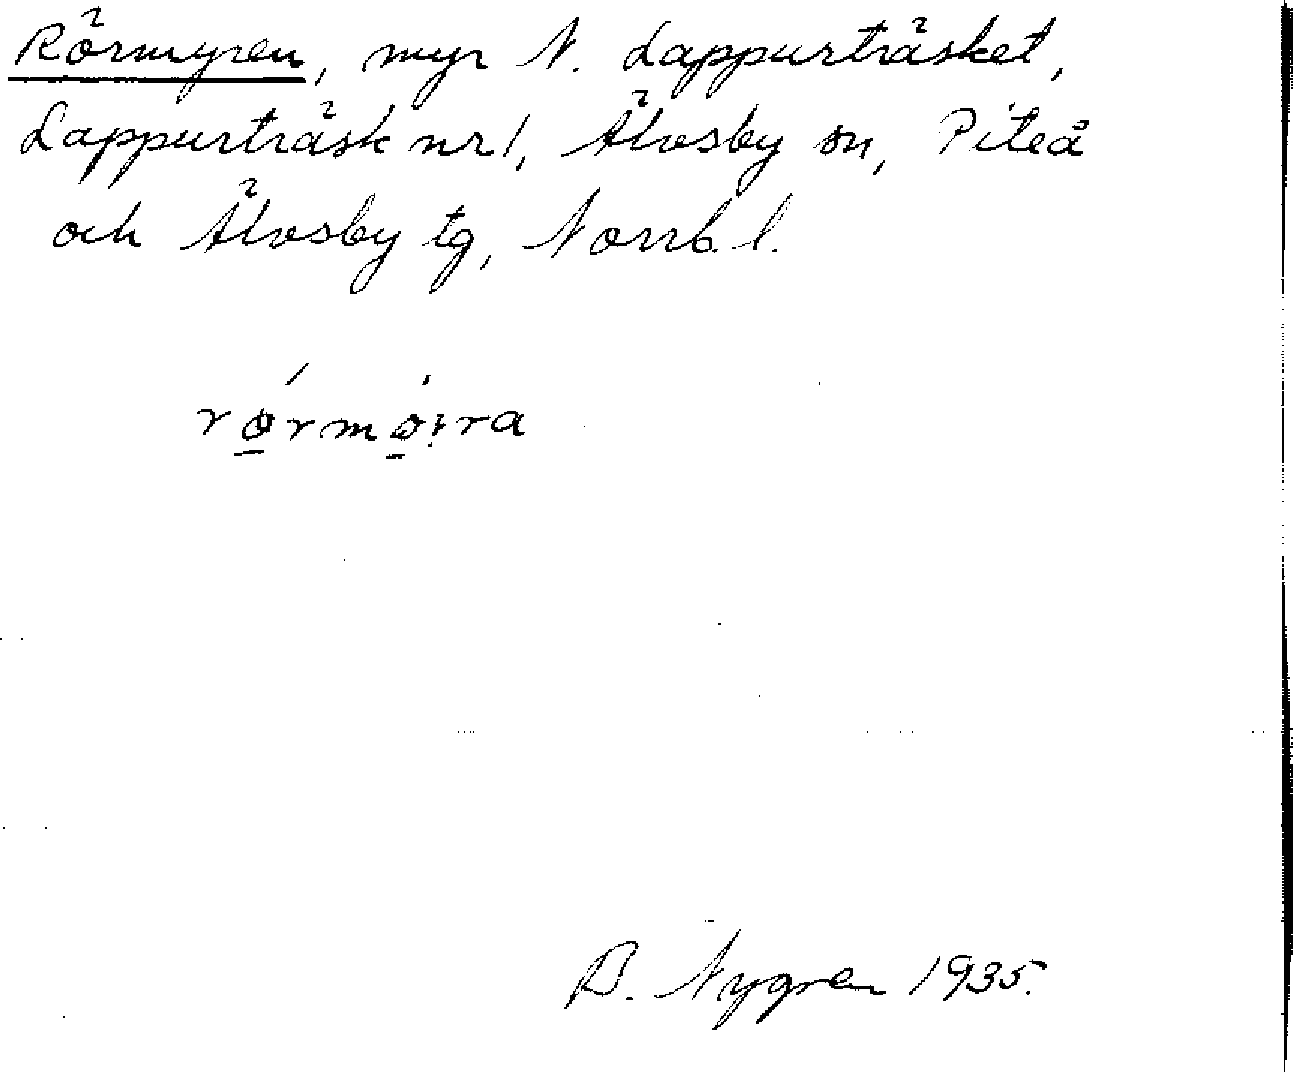 Rörmyren, myr N. Lappurträsket,
Lappurträsk nr 1, Älvsby sn, Piteå
och Älvsby tg, Norrb. l.
rǿ̱rmø̱̍i̩ra
B. Nygren 1935.